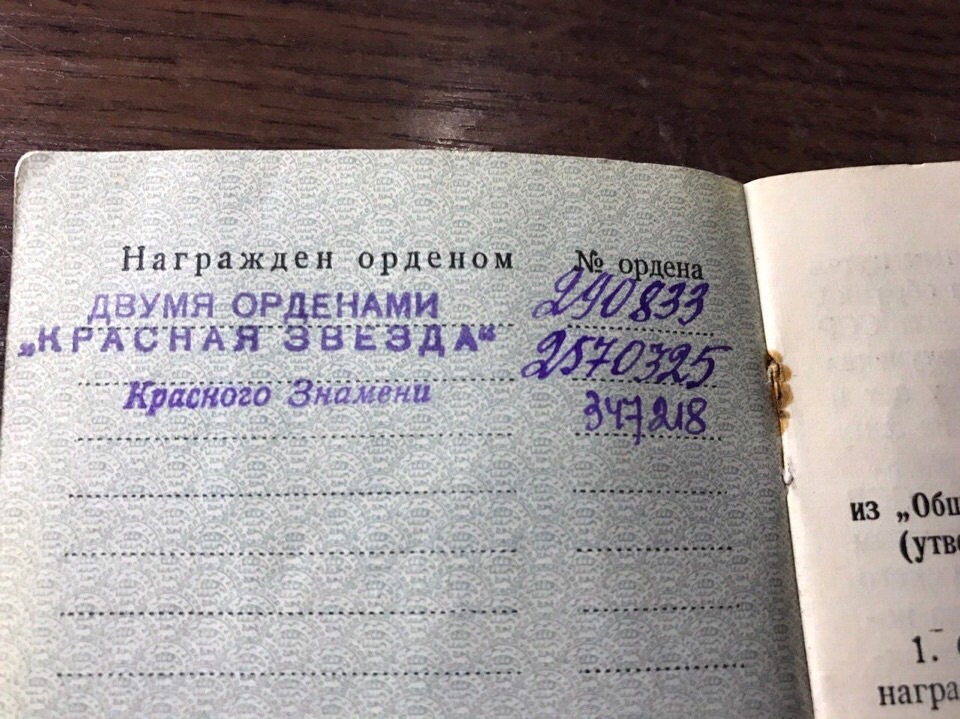 Награжден орденом № ордена
ДВУМЯ ОРДЕНАМИ 290833
„КРАСНАЯ ЗВЕЗДА“ 2570325
Красного Знамени 347218
из „Общ
(утве
1.
награ